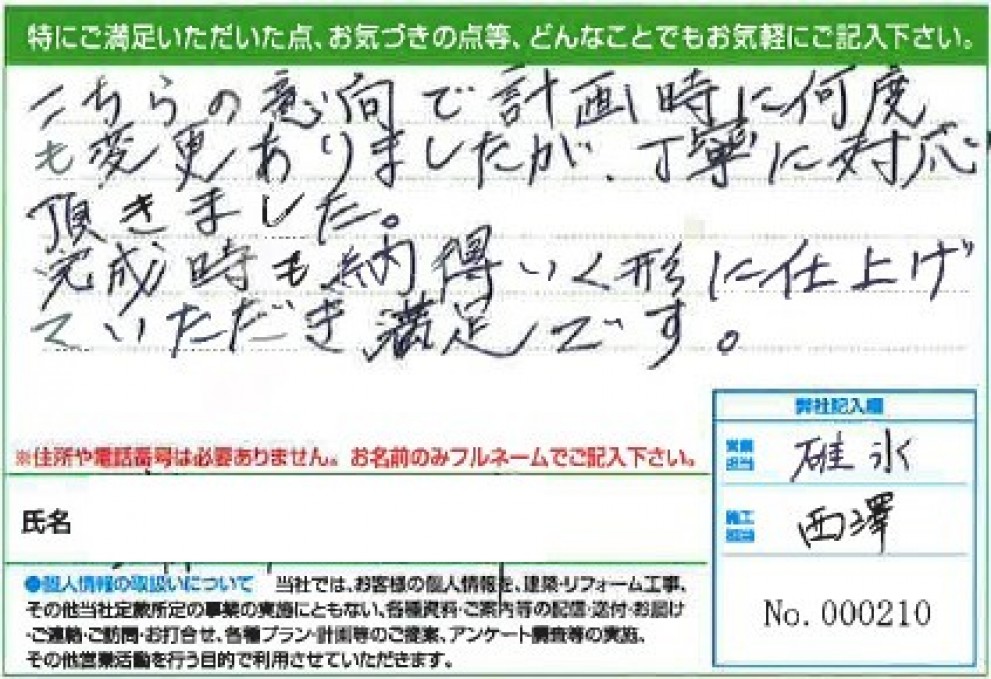 特にご満足いただいた点、お気づきの点等、どんなことでもお気軽にご記入下さい。
こちらの意向で計画時に何度
も変更ありましたが、丁寧に対応
頂きました。
完成時も納得いく形に仕上げ
ていただき満足です。
※住所や電話番号は必要ありません。お名前のみフルネームでご記入下さい。
氏名
弊社記入欄
営業担当 碓氷
施工担当 西澤
No.000210
●個人情報の取扱いについて 当社では、お客様の個人情報を、建築・リフォーム工事、
その他当社定款所定の事業の実施にともない、各種資料・ご案内等の配信・送付・お届け
・ご連絡・ご訪問・お打合せ、各種プラン・計画等のご提案、アンケート調査等の実施、
その他営業活動を行う目的で利用させていただきます。